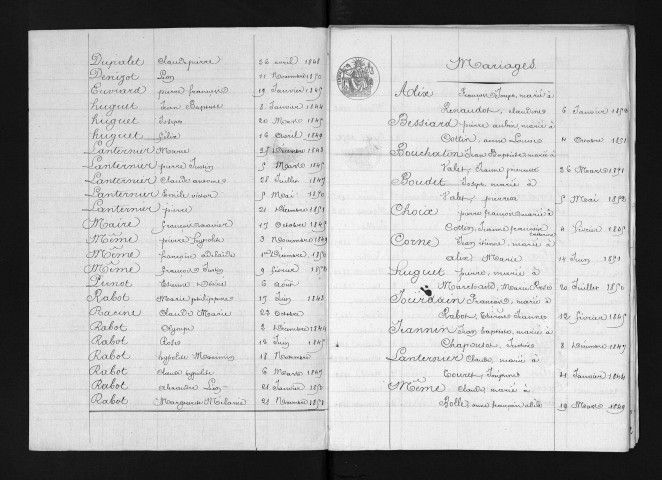 Dupalet Claude pierre 22 avril 1848
Denizot Léon 11 Novembre 1850
Euvrard pierre françois 19 Janvier 1845
huguet Jean Baptiste 8 Janvier 1844
huguet Joseph 20 Mars 1845
huguet 16 Avril 1849
Lanternier Marie Décembre 1843
Lanternier pierre Justin 5 Mars 1845
Lanternier Claude antoine 28 Juillet 1847
Lanternier Emile victor 5 Mai 1850
Lanternier pierre 21 Décembre 1851
Maire françois xavier 17 Octobre 1845
Même pierre hypolite 3 Novembre 1849
Même françoise adélaïde 1er Décembre 1850
Même françois Justin 9 février 1852
Pernot Etienne Désiré 6 Août
Rabot Marie philippine 17 Juin 1843
Racine Claude Marie 22 Octobre
Rabot Olympe 2 Décembre 1844
Rabot Rose 12 Juin 1845
Rabot hypolite 18 Novembre
Rabot Claude hypolite 6 Mars 1847
Rabot Léon 21 Janvier 1850
Rabot Marguerite Mélanie 28 Novembre 1851
Mariages.
Alix François Joseph, marié à
Renaudot, claudine 6 Janvier
Bessiard pierre aubin, marié à
Cottin, anne Louise 11 Octobre 1851
Boucherton Jean Baptiste, marié à
Valet, Jeanne pierrette 26 Mars 1851
Boudet Joseph, marié à
Valet, pierrette 5 Mai 1852
Choix pierre françois, marié à
Cottin, Jeanne françoise 4 février 1845
Corne Jean , marié à
Alix Marie 14 Juin 1851
huguet pierre, marié à
Marchand, Marie 20 Juillet 1850
Jourdain François, marié à
Rabot, Etiennette Jeanne 12 février 1845
Jeannin Jean baptiste, marié à
Chapoutot, Justine 8 Décembre 1847
Lanternier Claude, marié à
21 Janvier 1844
Même Claude, marié à
Bolle, anne françoise 19 Mars 1849